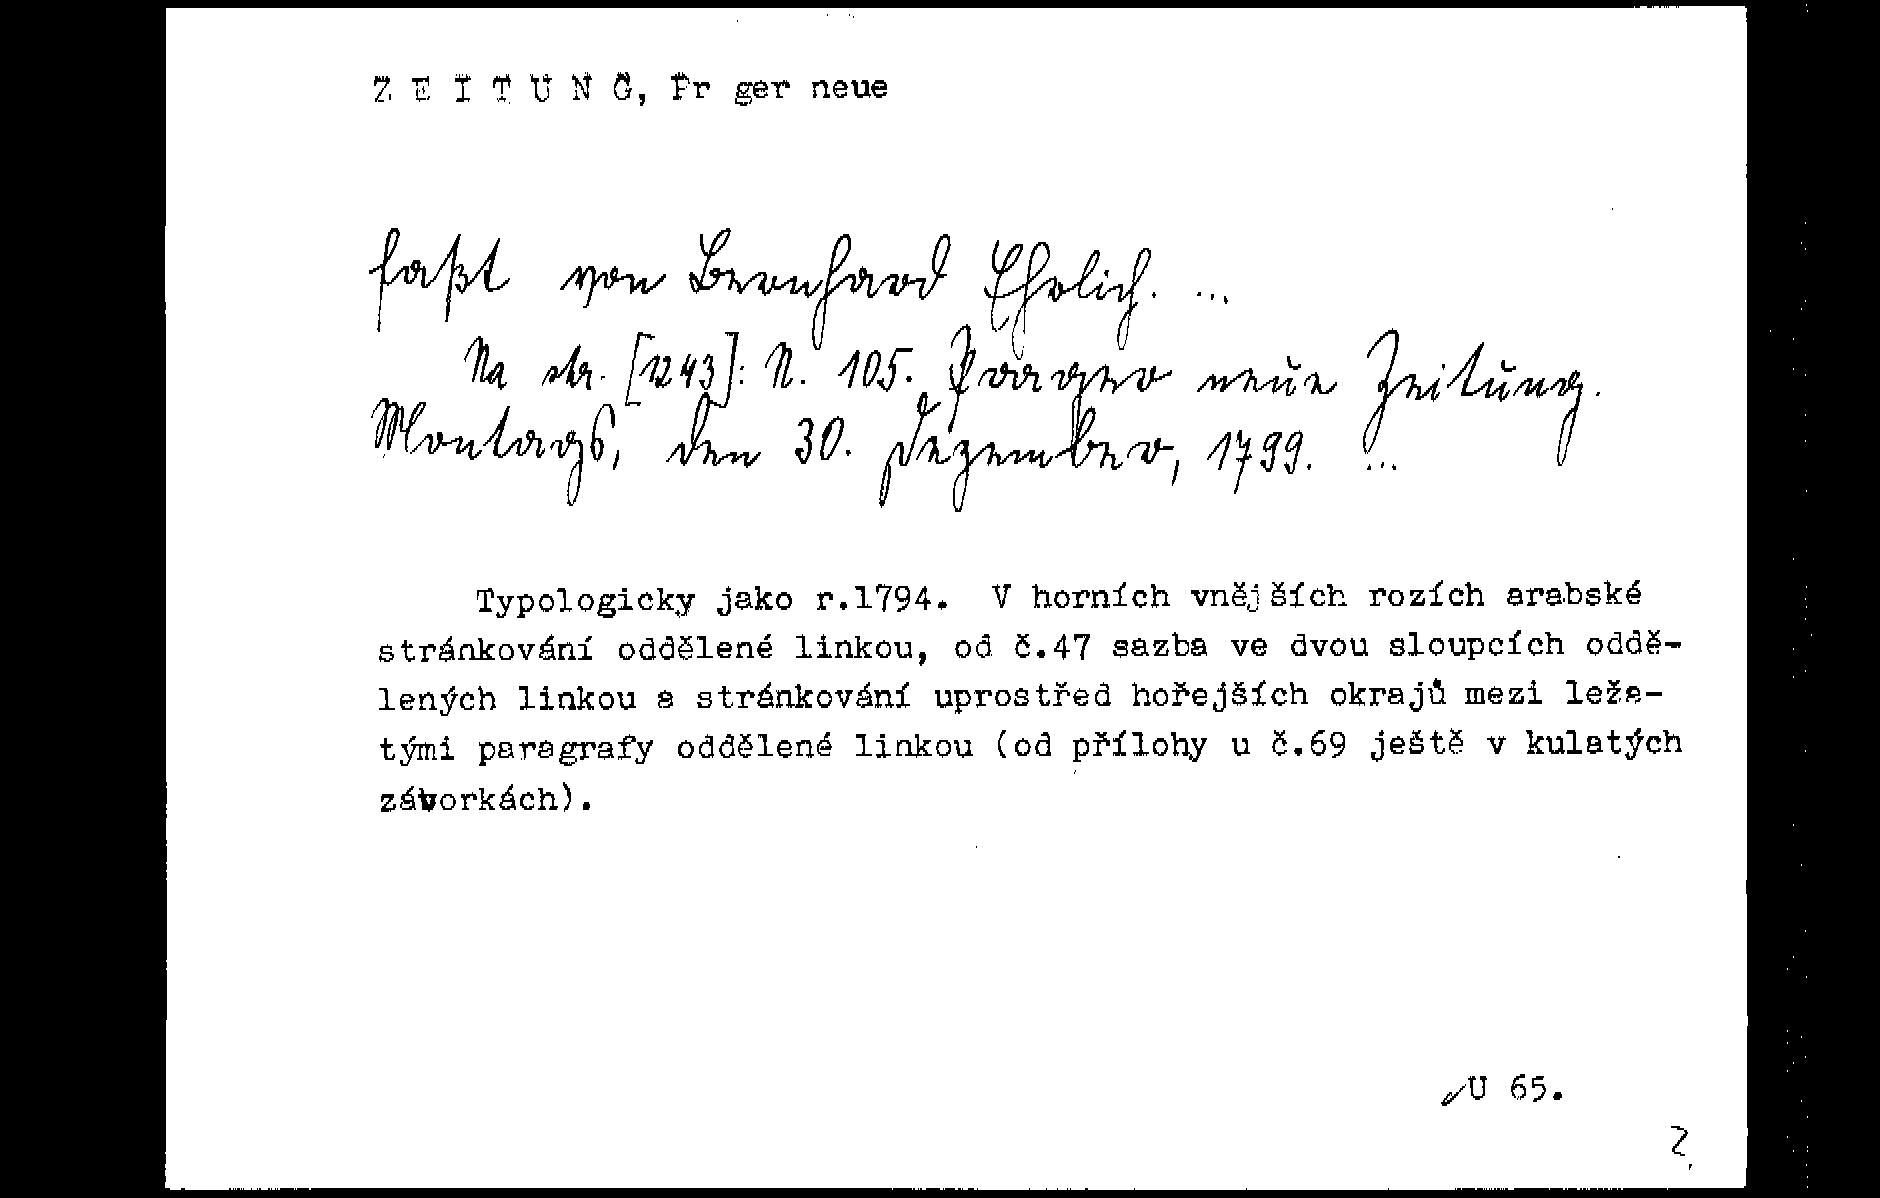 Z E I T U N G, Pr ger neue
faßt von Bernhard Ehrlich. ...
Na str. [1243]: N. 105. Praager neue Zeitung.
Montags, den 30. Dezember, 1799. ...
Typologicky jako r.1794. V horních vnějších rozích arabské
stránkování oddělené linkou, od č.47 sazba ve dvou sloupcích oddě-
lených linkou a stránkování uprostřed hořejších okrajů mezi leža-
tými paragrafy oddělené linkou (od přílohy u č.69 ještě v kulatých
závorkách).
U 65.
2